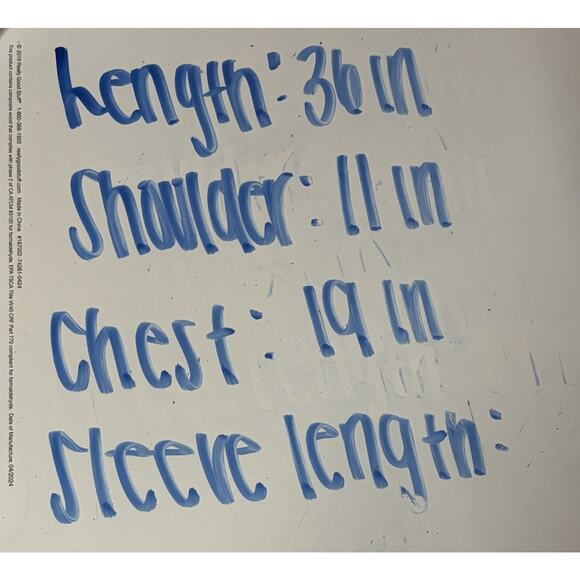 Length: 36 in
Shoulder: 11 in
Chest: 19 in
Sleeve length:
- © 2018 Really Good Stuff® 1-800-366-1920 reallygoodstuff.com Made in China #167002-74261-0424
This product contains composite wood that complies with phase 2 of CA ATCM 93120 for formaldehyde, EPA TSCA Title VI/40 CRF Part 770 compliant for formaldehyde. Date of Manufacture: 04/2024